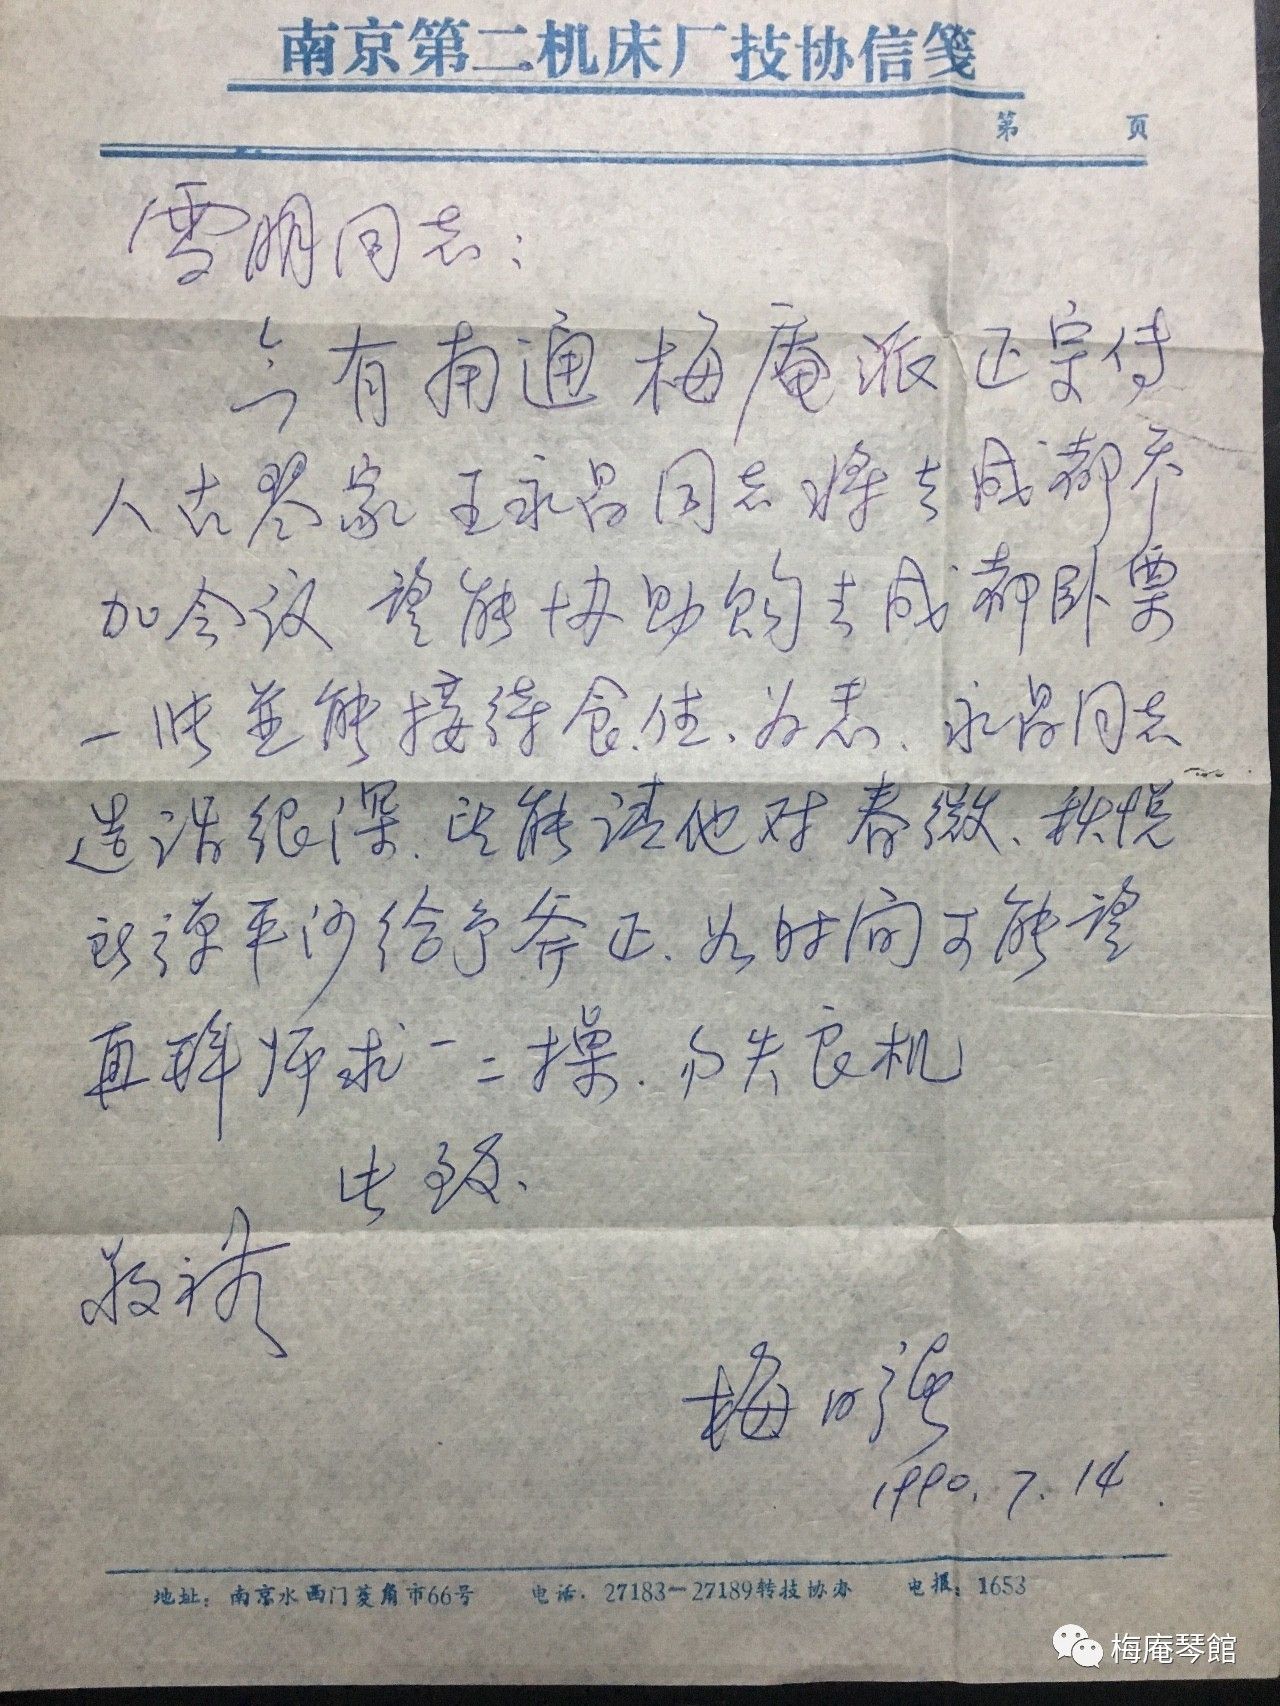 南京第二机床厂技协信笺
第 页
雪明同志：
今有南通梅庵派正宗传
人古琴家王永昌同志将去成都参
加会议 望能协助购去成都卧票
一张并能接待食住、为志、永昌同志
造诣很深、望能请他对春微、秋悦
的平沙给予斧正、如时间可能望
再拜师求一二操、勿失良机
此致、
敬礼
梅曰强
1990.7.14.
地址：南京水西门菱角市66号 电话：27183－27189转技协办 电报：1653
梅庵琴館